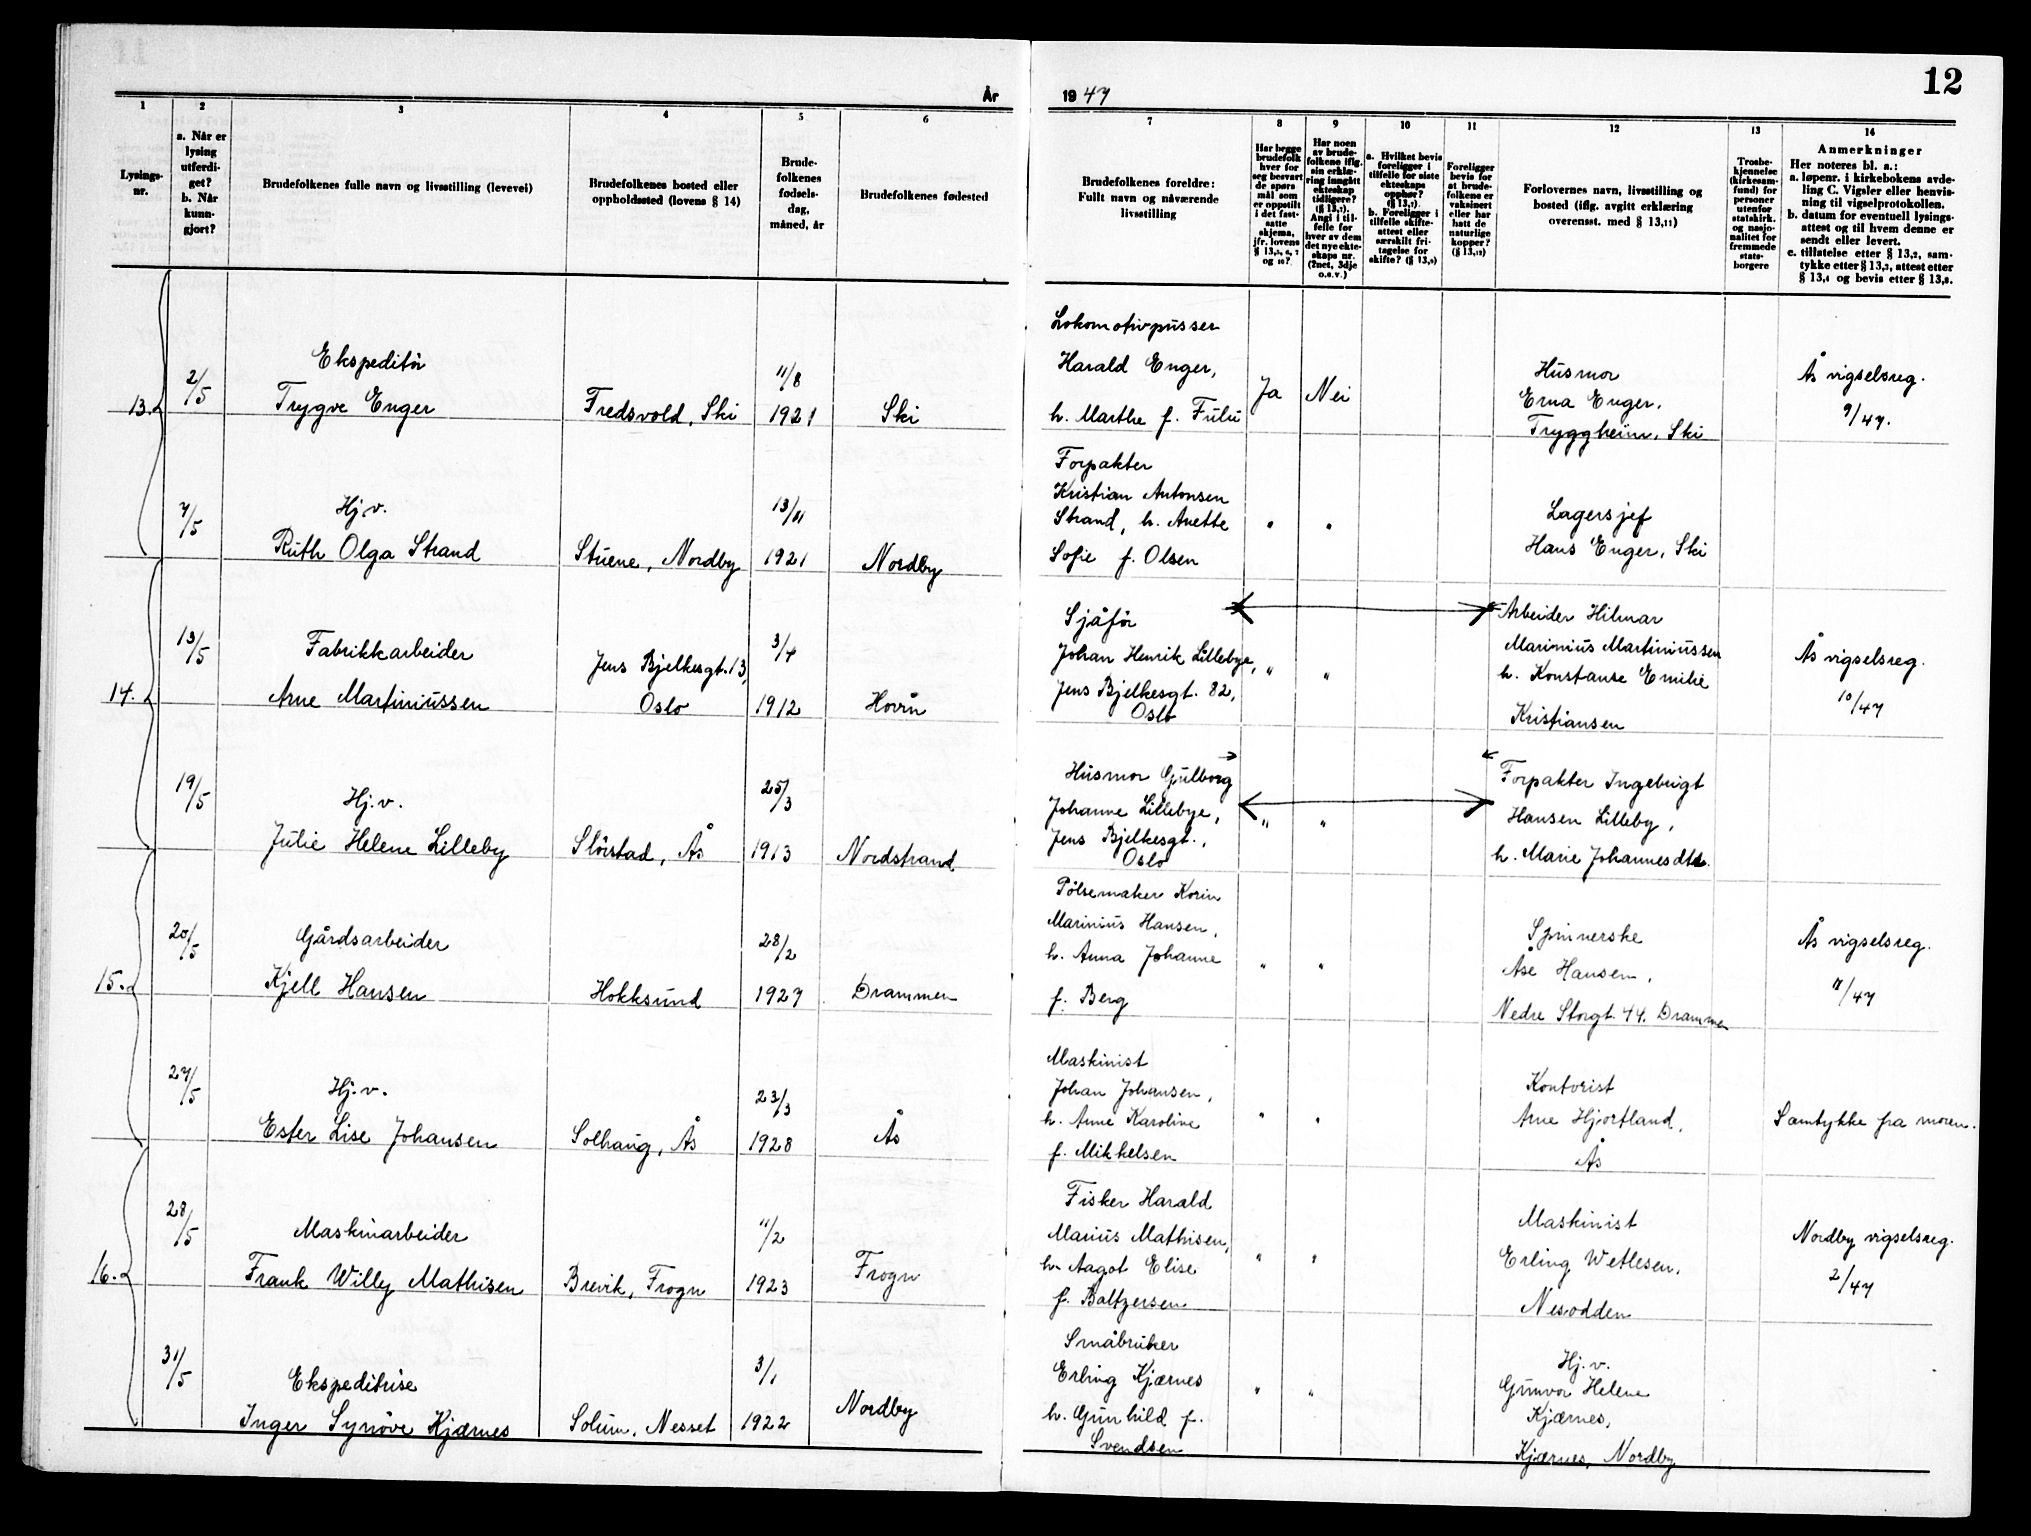 12
År
1947
1
2
3
4
5
6
7
8
9
10
11
12
13
14
Lysings-
nr.
a. Når er
lysing
utferdi-
get?
b. Når
kunn-
gjort?
Brudefolkenes fulle navn og livsstilling (levevei)
Brudefolkenes bosted eller
oppholdssted (lovens § 14)
Brude-
folkenes
fødsels-
dag,
måned, år
Brudefolkenes fødested
Brudefolkenes foreldre:
Fullt navn og nåværende
livsstilling
Har begge
brudefolk
hver for
seg besvart
de spørs
mål som
er oppstilt
i det fast-
satte
skjema,
jfr. lovens
§ 13,5, 6, 7
og 10?
Har noen
av brude-
folkene iflg.
sin erklæ-
ring inngått
ekteskap
tidligere?
(§ 13,7).
Angi i til-
felle for
hver av dem
det nye ekte-
skaps nr.
(2net, 3dje
o.s.v.)
a. Hvilket bevis
foreligger i
tilfelle for siste
ekteskaps
opphør?
(§ 13,7).
b. Foreligger i
tilfelle skifte-
attest eller
særskilt fri-
tagelse for
skifte? (§ 13,9)
Foreligger
bevis for
at brude-
folkene er
vaksinert
eller har
hatt de
naturlige
kopper?
(§ 13,12)
Forlovernes navn, livsstilling og
bosted (iflg. avgitt erklæring
overensst. med § 13,11)
Trosbe-
kjennelse
(kirkesam-
fund) for
personer
utenfor
statskirk.
og nasjo-
nalitet for
fremmede
stats-
borgere
Anmerkninger
Her noteres bl. a.:
a. løpenr. i kirkebokens avde-
ling C. Vigsler eller henvis-
ning til vigselprotokollen.
b. datum for eventuell lysings-
attest og til hvem denne er
sendt eller levert.
c. tillatelse etter § 13,2, sam-
tykke etter § 13,3, attest etter
§ 13,4 og bevis etter § 13,8.
13.
2/5
Ekspeditør
Trygve Enger
Fredsvold, Ski
11/8
1921
Ski
Lokomotivpusser
Harald Enger,
h. Marthe f. Fulu
Ja
Nei
Husmor
Erna Enger,
Tryggheim, Ski
Ås vigselsreg.
9/47.
7/5
Hj.v.
Ruth Olga Strand
Stuene, Nordby
13/11
1921
Nordby
Forpakter
Kristian Antonsen
Strand, h. Anette
Sofie f. Olsen
"
"
Lagersjef
Hans Enger, Ski
14.
13/5
Fabrikkarbeider
Arne Martiniussen
Jens Bjelkesgt. 13,
Oslo
3/4
1912
Hovin
Sjåfør
Johan Henrik Lillebye,
Jens Bjelkesgt. 82,
Oslo
"
"
Arbeider Hilmar
Marinius Martiniussen
h. Konstanse Emilie
Kristiansen
Ås vigselsreg.
10/47
19/5
Hj.v.
Julie Helene Lilleby
Slørstad, Ås
25/3
1913
Nordstrand
Husmor Gulborg
Johanne Lillebye,
Jens Bjelkesgt.,
Oslo
"
"
Forpakter Ingebrigt
Hansen Lilleby,
h. Marie Johannesdtd.
15.
20/5
Gårdsarbeider
Kjell Hansen
Hokksund
28/2
1927
Drammen
Pølsemaker Korin
Marinius Hansen,
h. Anna Johanne
f. Berg
"
"
Spinnerske
Åse Hansen,
Nedre Storgt. 44. Drammen
Ås vigselsreg.
7/47
27/5
Hj.v.
Ester Lise Johansen
Solhaug, Ås
23/3
1928
Ås
Maskinist
Johan Johansen,
h. Anne Karoline
f. Mikkelsen
"
"
Kontorist
Arne Hjortland,
Ås
Samtykke fra moren.
16.
28/5
Maskinarbeider
Frank Willy Mathisen
Brevik, Frogn
11/2
1923
Frogn
Fisker Harald
Marius Mathisen,
h. Aagot Elise
f. Baltzersen
"
"
Maskinist
Erling Wetlesen,
Nesodden
Nordby vigselsreg.
2/47
31/5
Ekspeditrise
Inger Synøve Kjærnes
Solum, Nesset
3/1
1922
Nordby
Småbruker
Erling Kjærnes
h. Gunhild f.
Svendsen
"
"
Hj.v.
Gunvor Helene
Kjærnes,
Kjærnes, Nordby